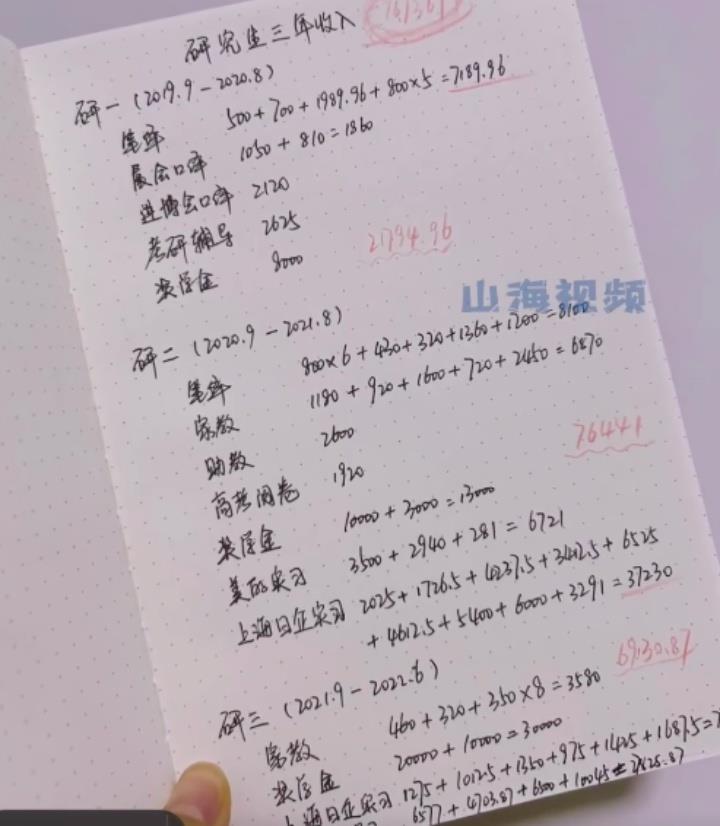 研究生三年收入
研一（2019.9-2020.8）
笔译 500+700+1989.96+800×5=7189.96
展会口译 1050+810=1860
进博会口译 2120
考研辅导 2625
奖学金 8000
21794.96
山海视频
研二（2020.9-2021.8）
笔译 800×6+430+320+1360+1200=8100
家教 1180+920+1600+720+2450=6870
助教 2600
高考阅卷 1920
76441
奖学金 10000+3000=13000
美的实习 3500+2940+281=6721
上海日企实习 2025+1726.5+4237.5+3412.5+6525
+4612.5+5400+6000+3291=37230
69130.87
研三（2021.9-2022.6）
家教 460+320+350×8=3580
奖学金 20000+10000=30000
上海日企实习 1275+1012.5+1350+975+1425+1687.5=
6577+4703.87+6500+10045=